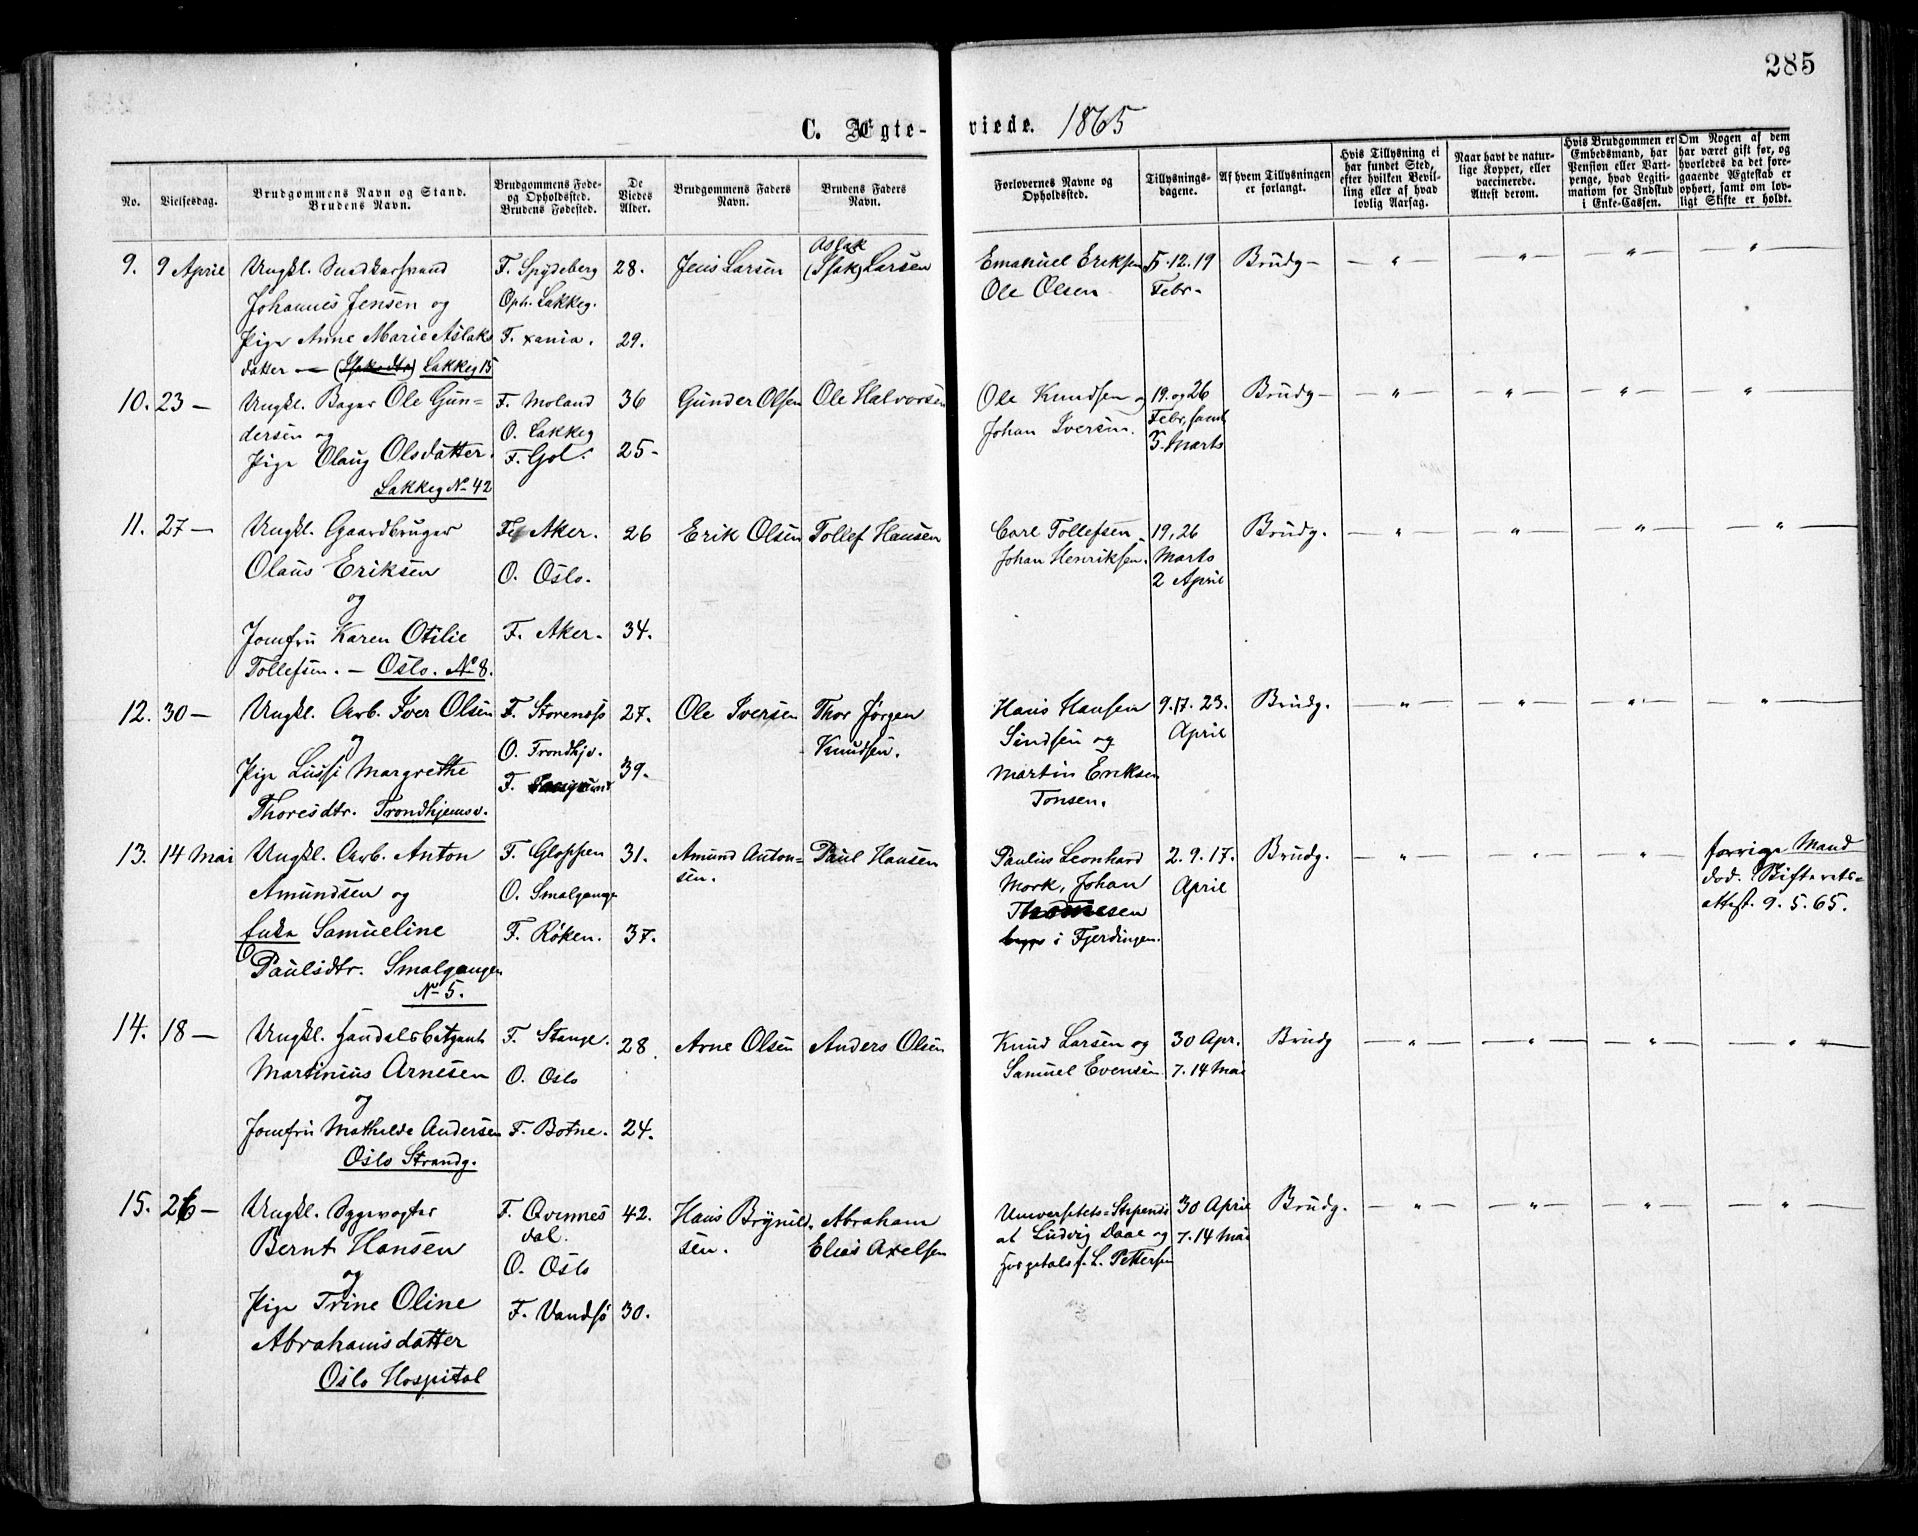 285
C. Ægteviede. 1865
No.
Vielsesdag.
Brudgommens Navn og Stand.
Brudens Navn.
Brudgommens Føde-
og Opholdssted.
Brudens Fødested.
De
Viedes
Alder.
Brudgommens Faders
Navn.
Brudens Faders
Navn.
Forlovernes Navne og
Opholdssted.
Tillysnings-
dagene.
Af hvem Tillysningen
er forlangt.
Hvis Tillysning ei
har fundet Sted,
efter hvilken Bevil-
ling eller af hvad
lovlig Aarsag.
Naar havt de natur-
lige Kopper, eller
vaccinerede.
Attest derom.
Hvis Brudgommen er
Embedsmand, har
Pension eller Vart-
penge, hvad Legiti-
mation for Indskud
i Enke-Cassen.
Om Nogen af dem
har været gift før, og
hvorledes da det fore-
gaaende Ægteskab er
ophørt, samt om lov-
ligt Skifte er holdt.
9. 9 April
Ungkl.
Johannes Jensen og
Pige Anne Marie Aslaks
datter — (Isaksdtr) Lakkeg 15
F. Spydeberg
Oph. Lakkeg.
F. xania.
28.
29.
Jens Larsen
Aslak
(Isak) Larsen
Emanuel Eriksen
Ole Olsen
5. 12. 19
Febr.
Brudg —
— " — — " — — " — — " —
10. 23 —
Ungkl. Bager Ole Gun=
dersen og
Pige Olaug Olsdatter.
Lakkeg No 42
F. Moland
O. Lakkeg
F. Gol.
36
25 -
Gunder Olsen
Ole Halvorsen
Ole Knudsen og
Johan Iversen.
19. og 26
Febr, samt
5. Marts
Brudg —
— " — — " — — " — — " —
11. 27 —
Ungkl. Gaardbruger
Olaus Eriksen
og
Jomfru Karen Otilie
Tollefsen. — Oslo. No 8.
F. Aker.
O. Oslo.
F. Aker.
26
34.
Erik Olsen
Tollef Hansen
Carl Tollefsen
Johan Henriksen.
19, 26
Marts
2 April
Brudg.
— " — — " — — " — — " —
12. 30 —
Ungkl. Arb. Iver Olsen
og
Pige Lussi Margrethe
Thoresdtr. Trondhjemsv.
F. Storensjø
O. Trondhjv.
F.
27.
39.
Ole Iversen
Thor Jörgen
Knudsen.
Hans Hansen
Sindsen og
Martin Eriksen
Tonsen.
9. 17. 23.
April
Brudg.
— " — — " — — " — — " —
13. 14 Mai
Ungkl. Arb. Anton
Amundsen og
Enke Samueline
Paulsdtr. Smalgangen
No 5.
F. Gloppen
O. Smalgange
F. Röken.
31.
37.
Amund Anton=
sen.
Paul Hansen
Paulus Leonhard
Mork, Johan
Thomesen
begge i Fjerdingen.
2. 9. 17.
April
Brudg.
— " — — " — — " —
forrige Mand
död. Skifterets=
attest. 9. 5. 65.
14. 18 —
Ungkl. Handelsbetjent
Martinius Arnesen
og
Jomfru Mathilde Andersen
Oslo Strandg.
F. Stange.
O. Oslo
F. Botne.
28.
24.
Arne Olsen
Anders Olsen
Knud Larsen og
Samuel Evensen
30 Apr.
7. 14 Mai
Brudg
— " — — " — — " — — " —
15. 26 —
Ungkl. Sygevogter
Bernt Hansen
og
Pige Trine Oline
Abrahamsdatter
Oslo Hospital
F. Qvinnes
dal.
O. Oslo
F. Vandsö
42.
30.
Hans Brynild.
sen.
Abraham
Elias Axelsen
Universitets=Stipendi
at Ludvig Daae og
Hospitalsf. L. Pettersen
30 April
7. 14 Mai
Brudg.
— " — — " — — " — — " —